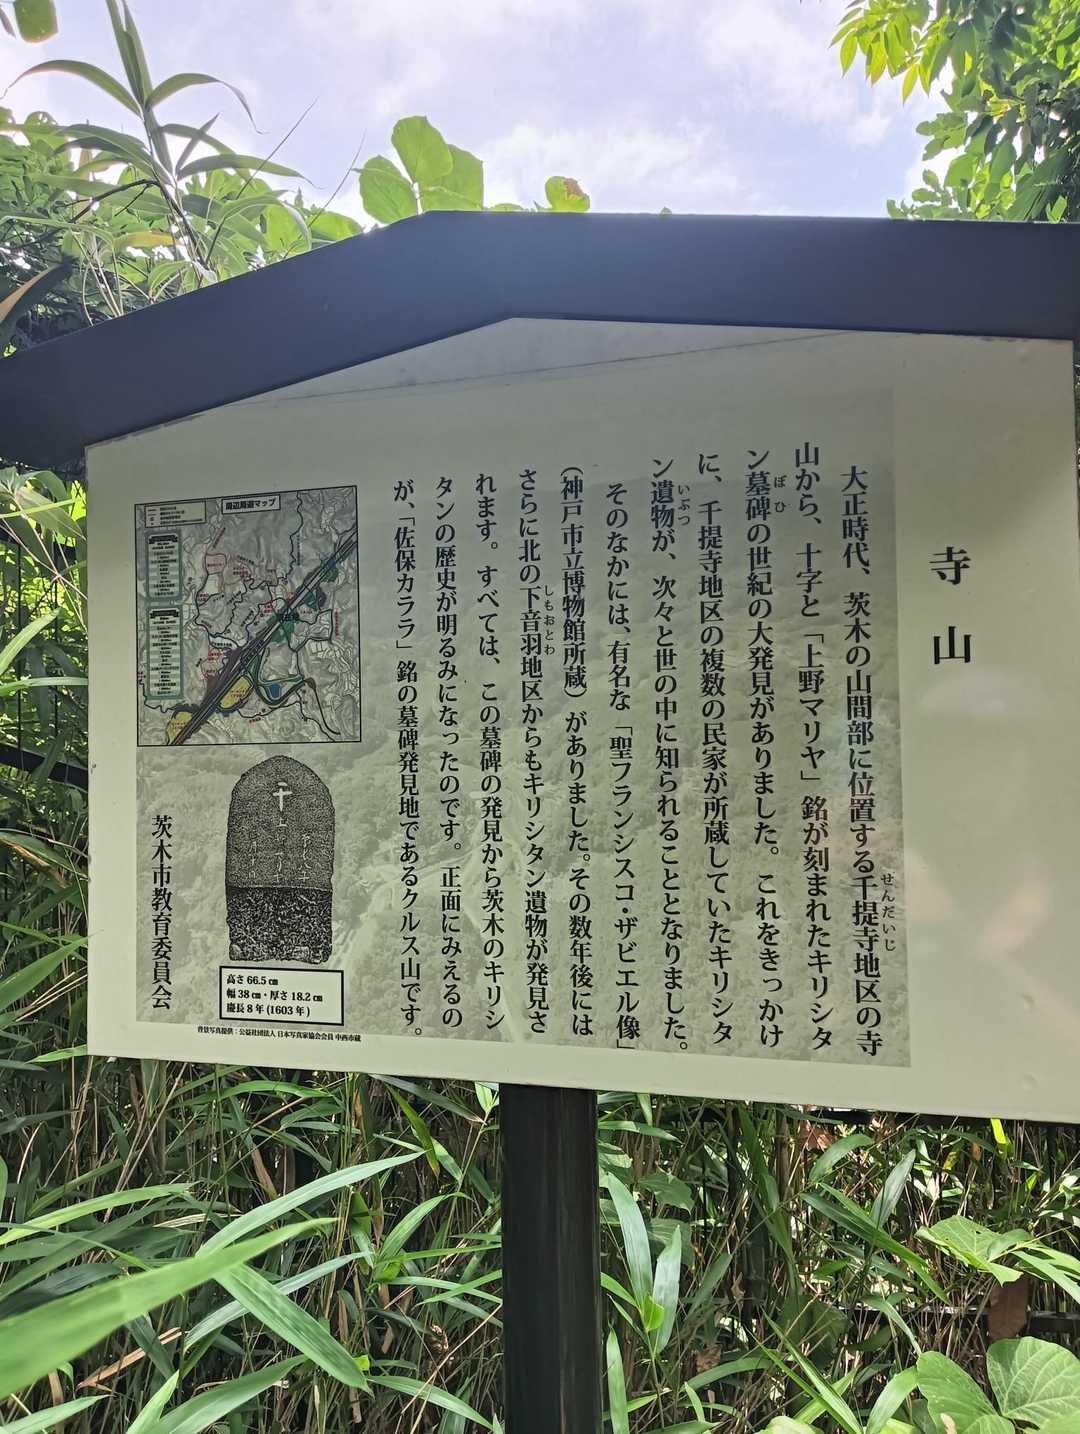 寺山
大正時代、茨木の山間部に位置する千提寺地区の寺
せんだいじ
山から、十字と「上野マリヤ」銘が刻まれたキリシタ
ン墓碑の世紀の大発見がありました。これをきっかけ
ぼひ
に、千提寺地区の複数の民家が所蔵していたキリシタ
ン遺物が、次々と世の中に知られることとなりました。
いぶつ
そのなかには、有名な「聖フランシスコ・ザビエル像」
（神戸市立博物館所蔵）がありました。その数年後には
さらに北の下音羽地区からもキリシタン遺物が発見さ
しもおとわ
れます。すべては、この墓碑の発見から茨木のキリシ
タンの歴史が明るみになったのです。正面にみえるの
が、「佐保カララ」銘の墓碑発見地であるクルス山です。
周辺周遊マップ
高さ66.5㎝
幅38㎝・厚さ18.2㎝
慶長8年(1603年)
茨木市教育委員会
背景写真提供：公益社団法人 日本写真家協会会員 中西市蔵